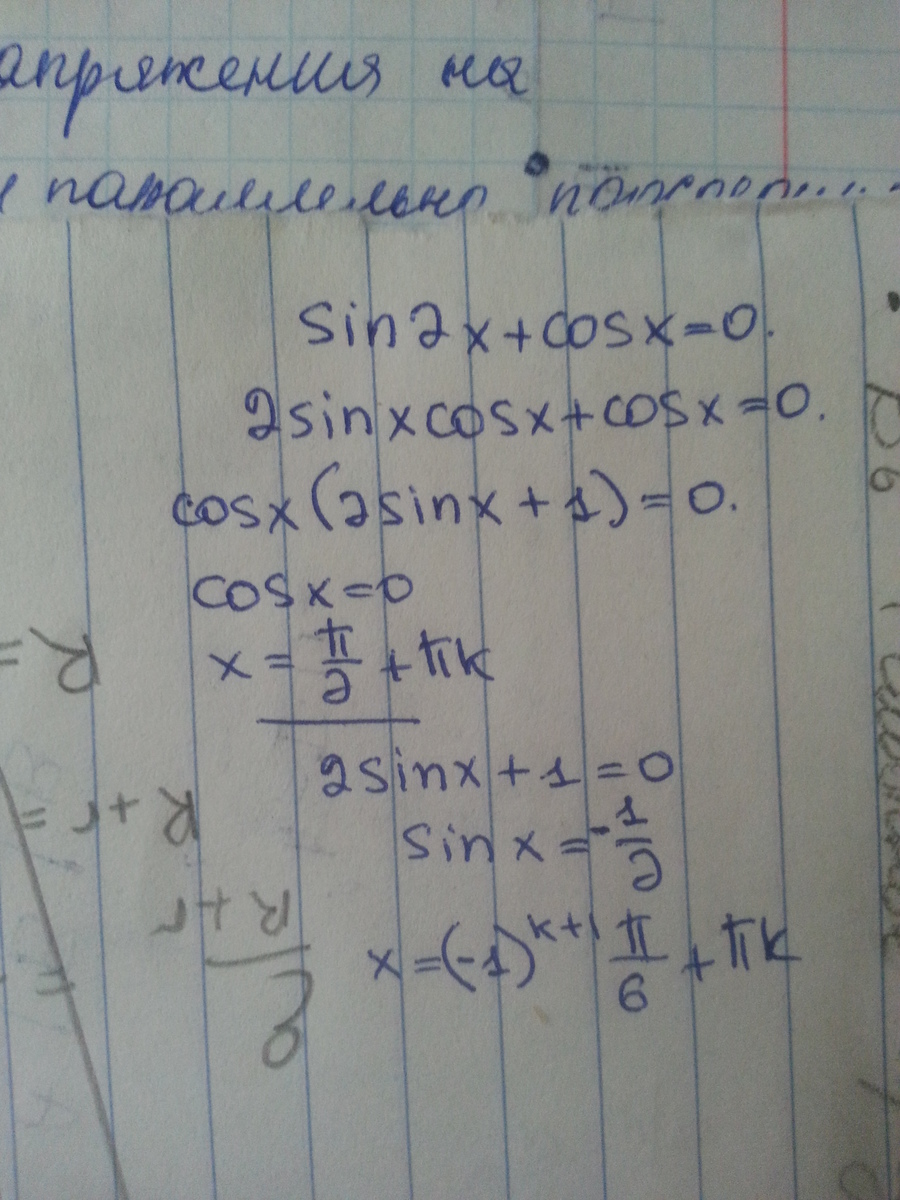 апряжения на
параллельно
sin2x+cosx=0.
2sinxcosx+cosx=0.
cosx(2sinx+1)=0.
cosx=0
x = π/2 + πk
2sinx+1=0
sin x = -1/2
x=(-1)^(k+1) π/6 + πk
R =
R + r =
R+r